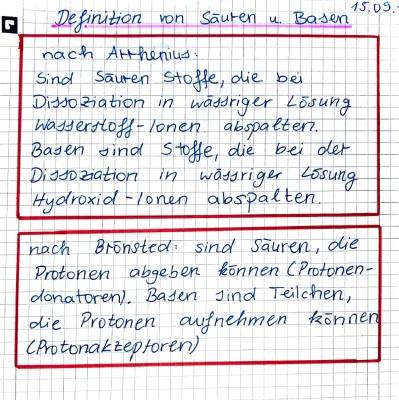 15.09.
Definition von Säuren u. Basen
nach Arrhenius:
Sind Säuren Stoffe, die bei
Dissoziation in wässriger Lösung
Wasserstoff-Ionen abspalten.
Basen sind Stoffe, die bei der
Dissoziation in wässriger Lösung
Hydroxid-Ionen abspalten.
nach Brönsted: sind Säuren, die
Protonen abgeben können (Protonen-
donatoren). Basen sind Teilchen,
die Protonen aufnehmen können
(Protonakzeptoren)